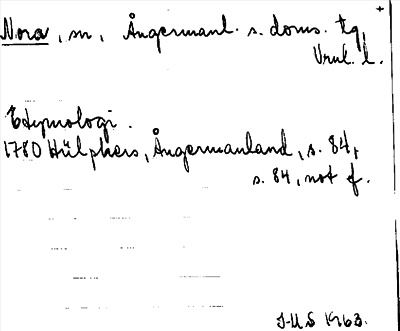 Nora, sn, Ångermanl. s. doms. tg,
Vrul. l.
Etymologi.
1780 Hülphers, Ångermanland, s. 84,
s. 84, not f.
J-U S 1963.